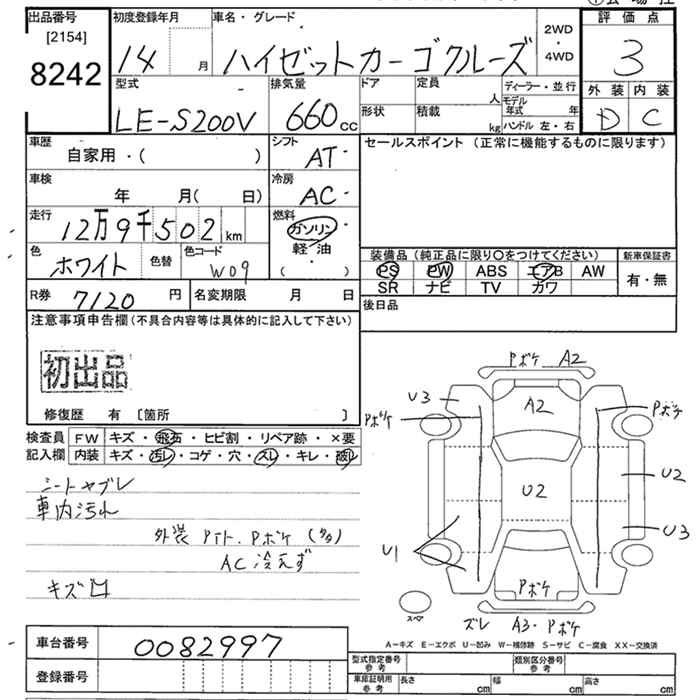 出品番号
[2154]
8242
初度登録年月
14 月
車名・グレード
ハイゼットカーゴクルーズ
2WD
・
4WD
評価点
3
外装 内装
D C
型式
LE-S200V
排気量
660 cc
ドア
形状
定員
人
積載
kg
ディーラー・並行
モデル
年式 年
ハンドル 左・右
車歴
自家用・( )
シフト
AT
車検
年 月( 日)
冷房
AC
走行
12万9千502 km
燃料
ガソリン
軽・油
( )
色
ホワイト
色替
色コード
W09
R券 7120 円
名変期限 月 日
セールスポイント (正常に機能するものに限ります)
装備品 (純正品に限り○をつけてください)
PS PW ABS エアB AW
SR ナビ TV カワ
新車保証書
有・無
後日品
注意事項申告欄(不具合内容等は具体的に記入して下さい)
初出品
修復歴 有 [箇所 ]
検査員
記入欄
FW キズ・飛石・ヒビ割・リペア跡・×要
内装 キズ・汚レ・コゲ・穴・スレ・キレ・破レ
シートヤブレ
車内汚れ
外装 Pイト、Pボケ (多)
AC 冷えず
キズ凹
Pボケ A2
U3
Pボケ
A2
Pボケ
U2
U2
U3
U1
Pボケ
スペア
ズレ A3・Pボケ
A-キズ E-エクボ U-凹み W-補修跡 S-サビ C-腐食 XX-交換済
車台番号 0082997
登録番号
型式指定番号
参考
類別区分番号
参考
車庫証明用
参考
長さ cm
幅 cm
高さ cm